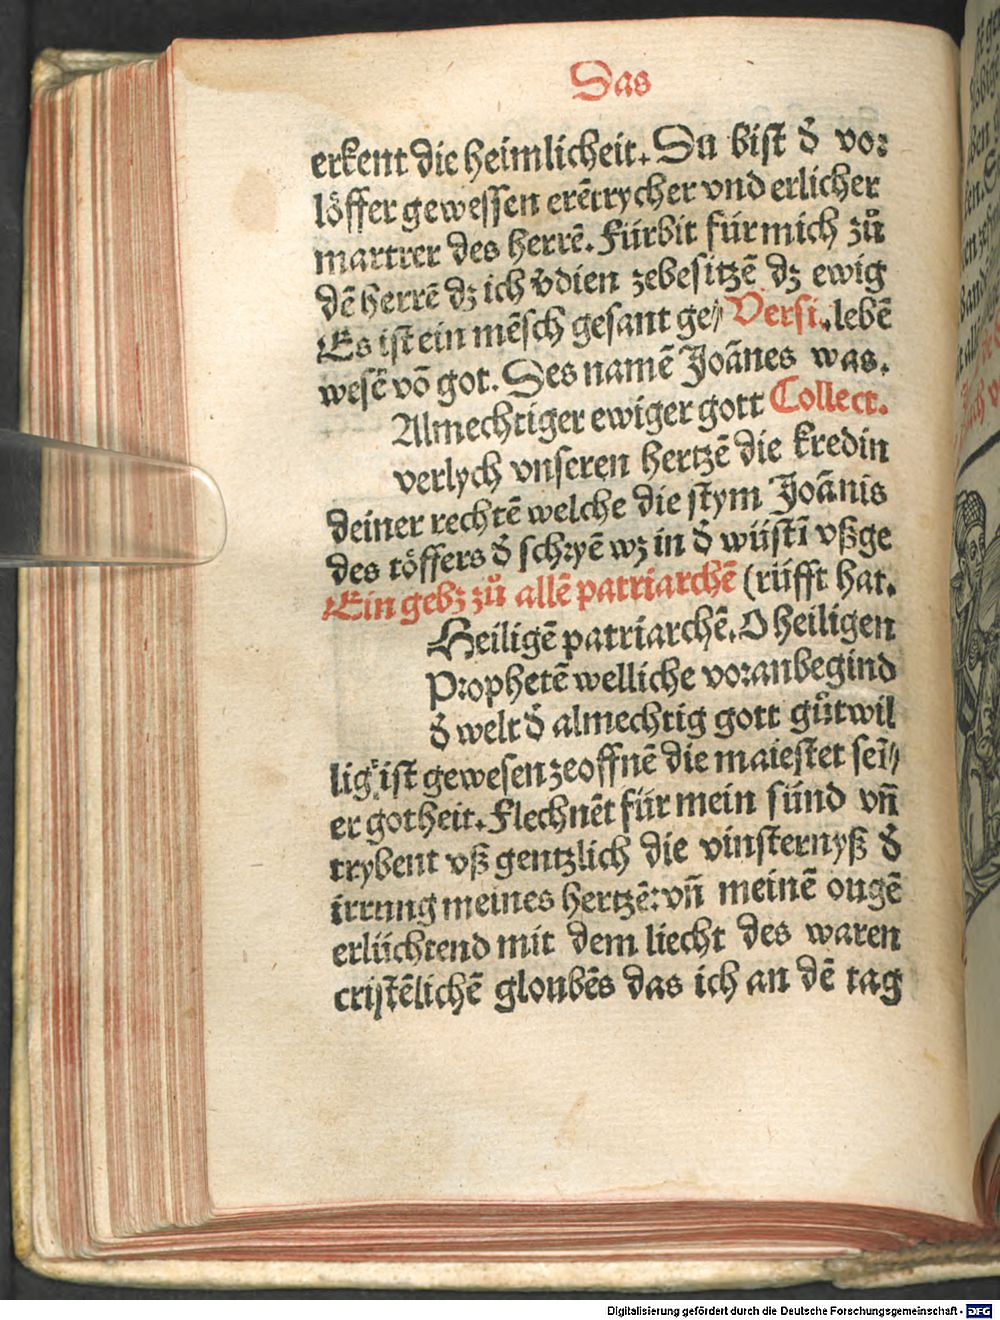 Das
erkent die heimlicheit. Du bist d̄ vor
löffer gewessen erētrycher vnd erlicher
martrer des herrē. Fürbit für mich zů
dē herrē dz ich v̄dien zebesitzē dz ewig
Es ist ein mēsch gesant ge⸗ Versi. lebē
wesē vō got. Des namē Joānes was.
Almechtiger ewiger gott Collect.
verlych vnseren hertzē die kredin
deiner rechtē welche die stym Joānis
des töffers d̄ schryē wz in d̄ wüstī vßge
Ein gebz zů allē patriarchē (rüfft hat.
Heiligē patriarchē. O heiligen
Prophetē welliche vor anbegind
d̄ welt d̄ almechtig gott gůtwil
lig ist gewesen zeoffnē die maiestet sei⸗
er gotheit. Flechnēt für mein sünd vn̄
trybent vß gentzlich die vinsternyß d̄
irrung meines hertzē: vn̄ meinē ougē
erlüchtend mit dem liecht des waren
cristēlichē gloubēs das ich an dē tag
Digitalisierung gefördert durch die Deutsche Forschungsgemeinschaft - DFG